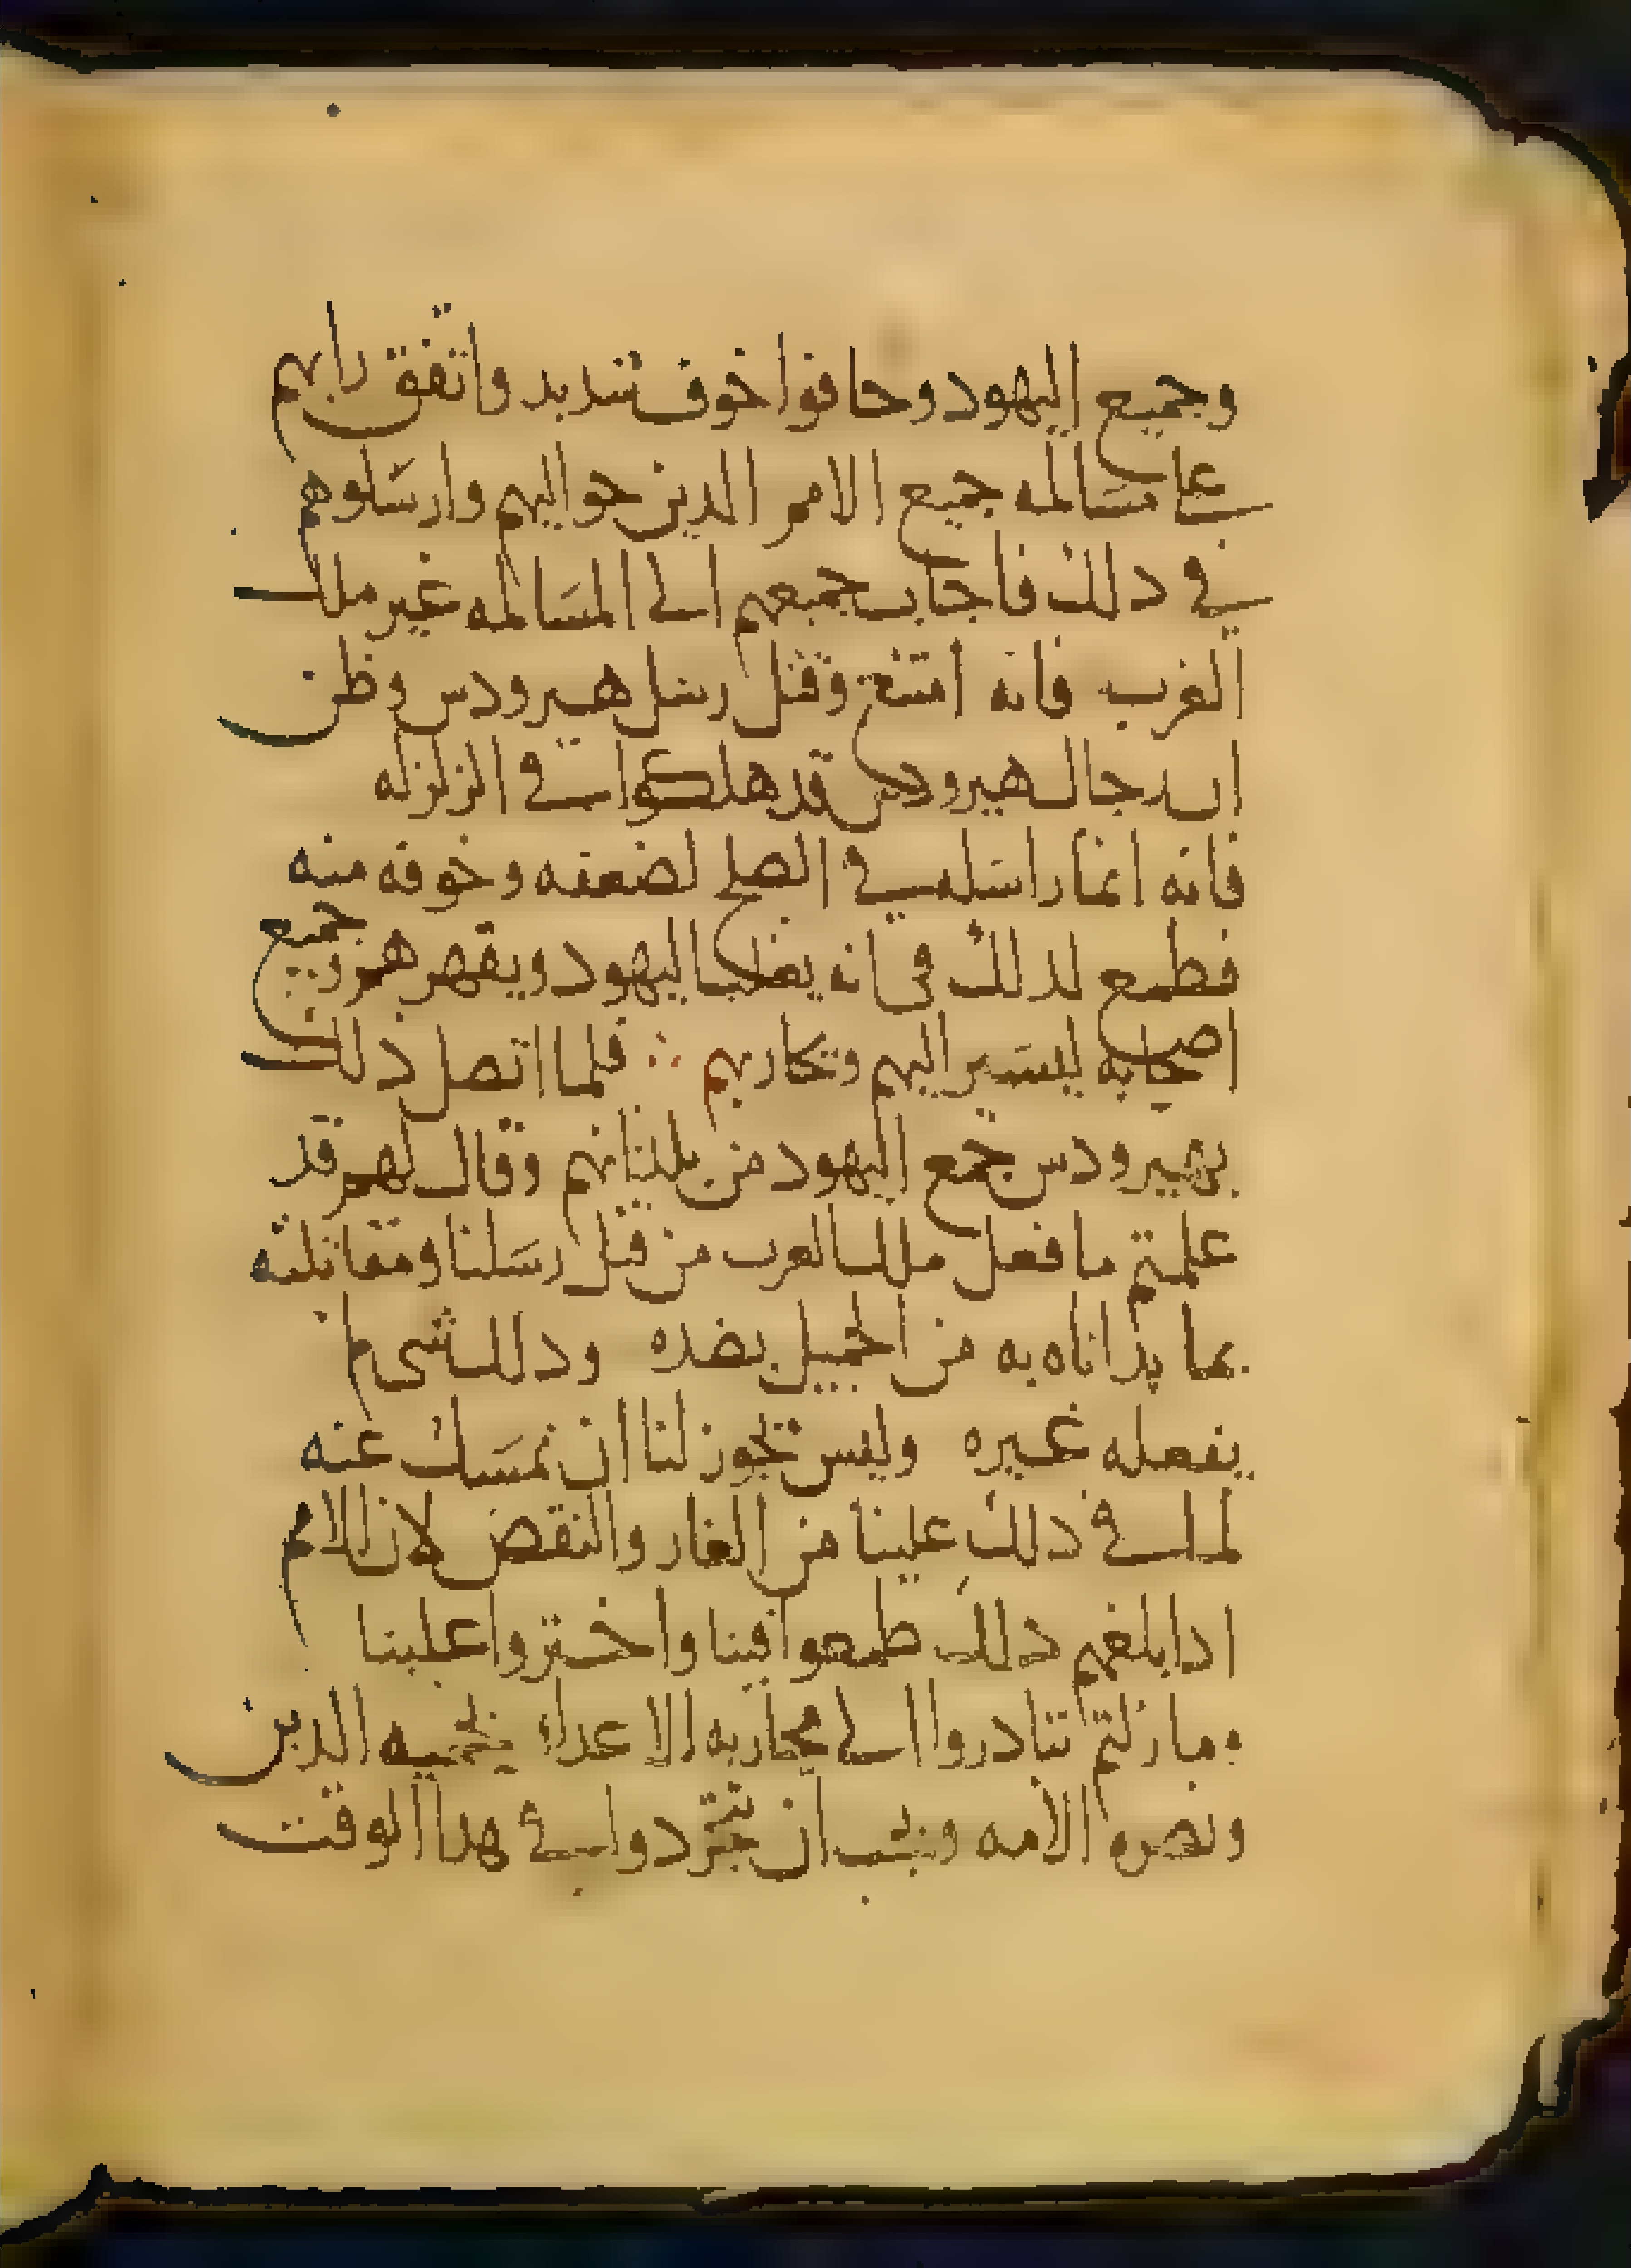 وجميع اليهود وحافوا خوف شديد واتفق رايهم
على مسالمه جميع الامم الدين حواليهم وارسلوهم
في دلك فاجاب جميعهم الى المسالمه غير ملك
العرب فانه امتنع وقتل رسل هيرودس وظن
ان رجال هيرودس قد هلكوا في الزلزله
فانه انما راسله في الصلح لضعفه وخوفه منه
فطمع لدلك في انه يغلب اليهود ويقهرهم وجميع
اصحابه ليسير اليهم وتحاربهم ∴ فلما اتصل ذلك
بهيرودس جمع اليهود من بلدانهم وقال لهم قد
علمتم ما فعل ملك العرب من قتل رسلنا ومقابلته
بما بداناه به من الجميل بضده ودلك شى لم
يفعله غيره وليس يجوز لنا ان نمسك عنه
لما في دلك علينا من العار والنقص لان الامم
ادا بلغهم دلك طمعوا فينا واجتروا علينا
وما زلتم تبادروا الى محاربه الاعداء محبه الدين
ونصره الامه ويجب ان تتجردوا في هدا الوقت